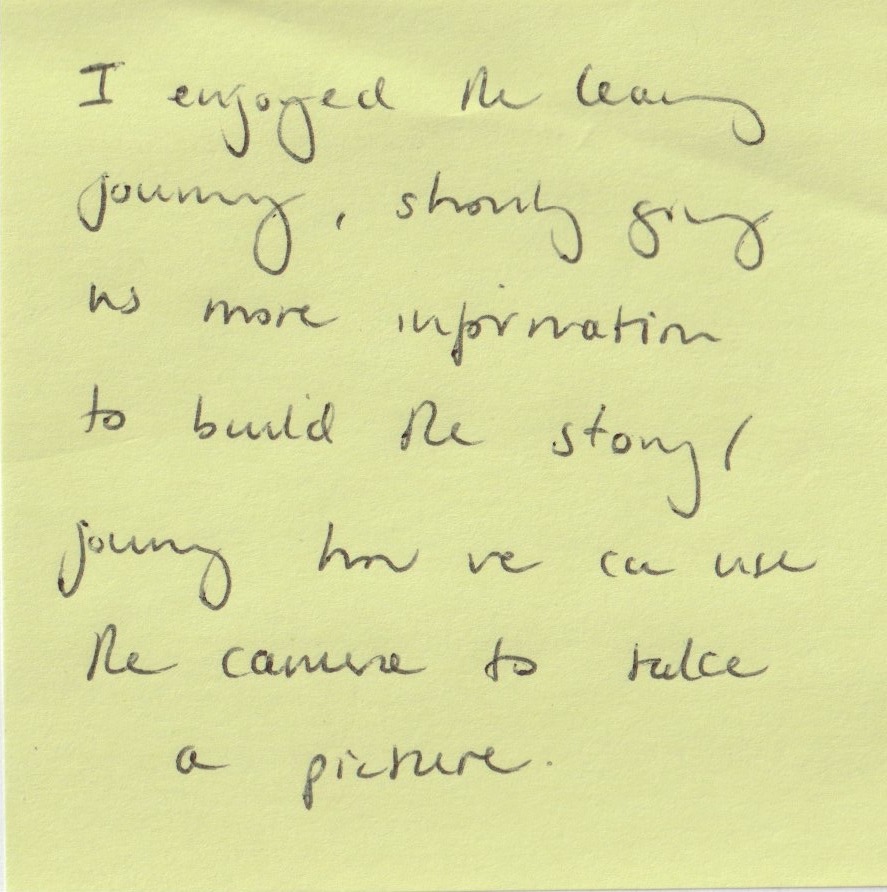 I enjoyed the learning
journey, slowly giving
us more information
to build the story/
journey how we can use
the camera to take
a picture.